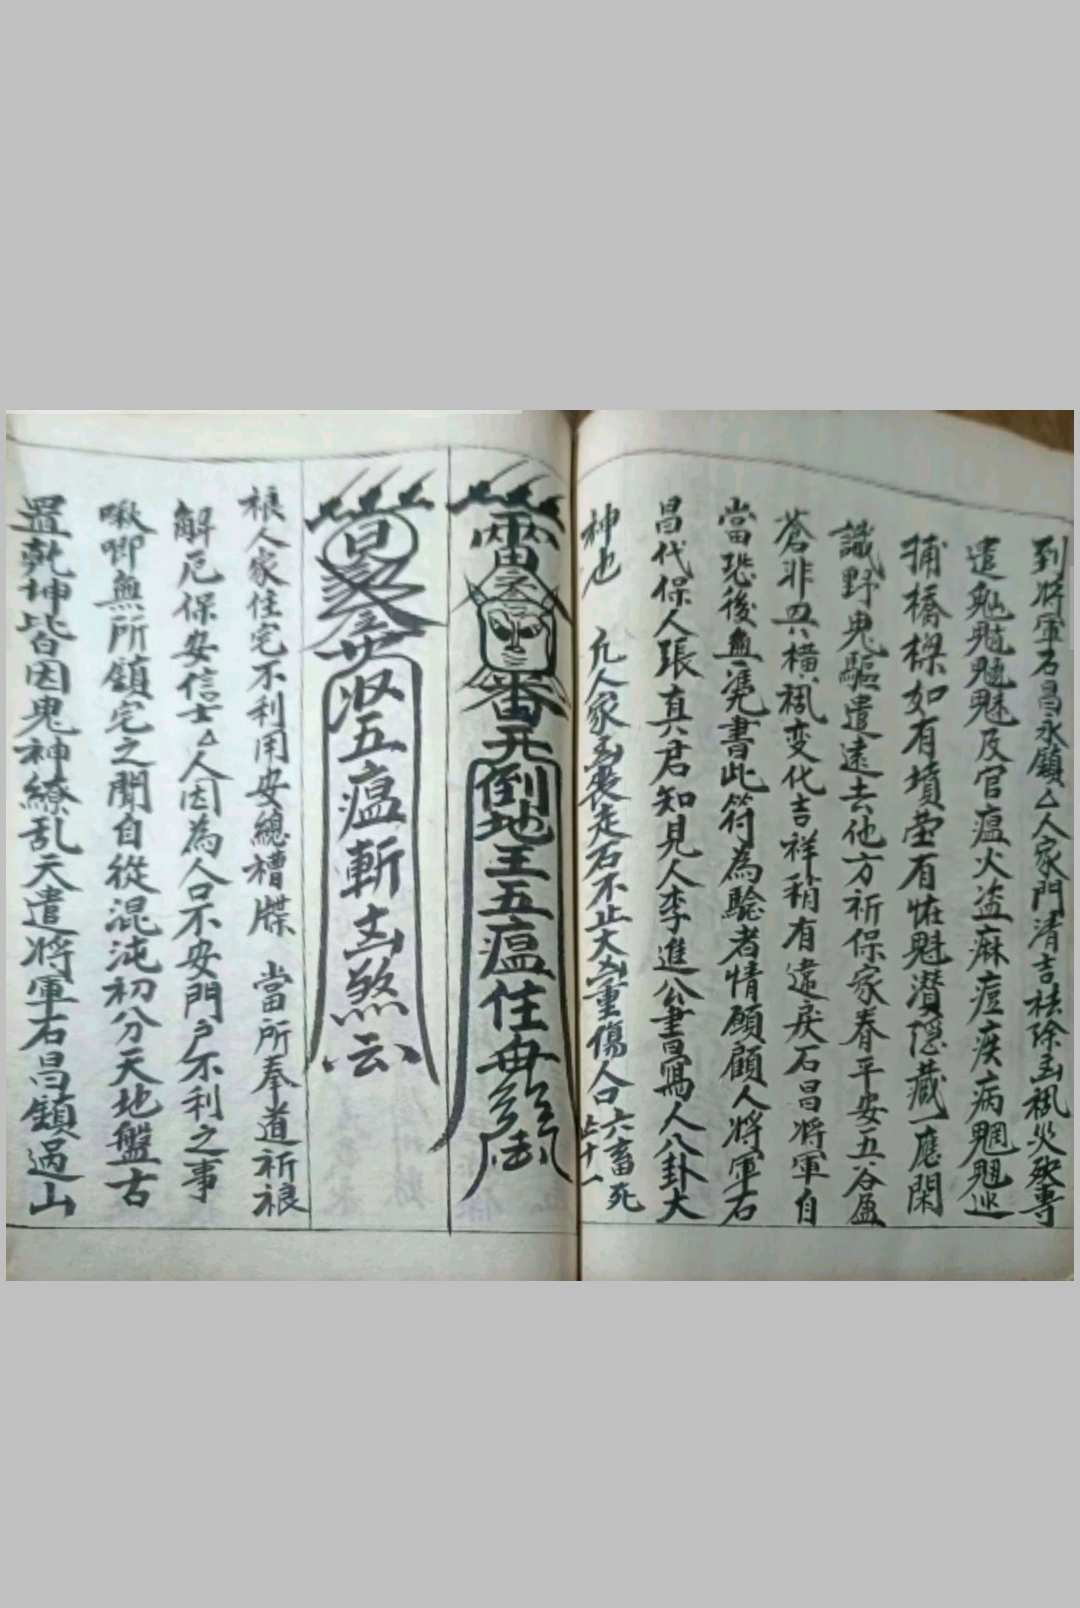 到將軍石昌永鎮△人家門清吉祛除凶禍災殃專
遣魁魅魍魎及官瘟火盜麻痘疾病魍魎巡
捕橋樑如有墳塋有怪魁潛隱藏一應閑
識野鬼驅遣遠去他方祈保家眷平安五谷盈
蒼非災橫禍变化吉祥稍有違戾石昌將軍自
當恐後無凴書此符為驗者情願顧人將軍石
昌代保人張真君知見人李進公書寫人八卦大
神也 凡人家凶喪走石不止大凶重傷人口六畜死
雷 番 倒地王五瘟住
收五瘟斬凶煞云
禳人家住宅不利用安總 牒 當所奉道祈禳
解厄保安信士△人因為人口不安門戶不利之事
啾唧無所鎮宅之聞自從混沌初分天地盤古
置乾坤皆因鬼神繚乱天遣將軍石昌鎮過山